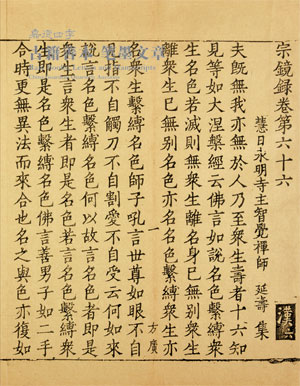 宗鏡錄卷第六十六
慧日永明寺主智覺禪師 延壽 集
夫既無我亦無於人乃至衆生壽者十六知
見等如大涅槃經云佛言如說名色繫縛衆
生名色若滅則無衆生離名色已無別衆生
離衆生已無別名色亦名名色繫縛衆生亦
名衆生繫縛名色師子吼言世尊如眼不自
見指不自觸刀不自割愛不自受云何如來
說言名色繫縛名色何以故言名色者即是
衆生言衆生者即是名色若言名色繫縛衆
生即是名色繫縛名色佛言善男子如二手
合時更無異法而來合也名之與色亦復如
一
方廣
古籍善本 翰墨文章